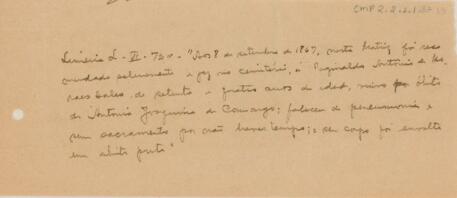 CMP 2.2.2.1
Limeira L - II - 72v - "Aos 8 de setembro de 1867, nesta Matriz foi reco
mendado solenemente e jaz no cemitério, o Reginaldo Antonio de Mo
raes Sales de setenta e quatro anos de idade, viúvo por óbito
de Antonia Joaquina de Camargo; faleceu de pneumonia e
sem sacramento por não haver tempo; seu corpo foi envolto
em hábito preto"